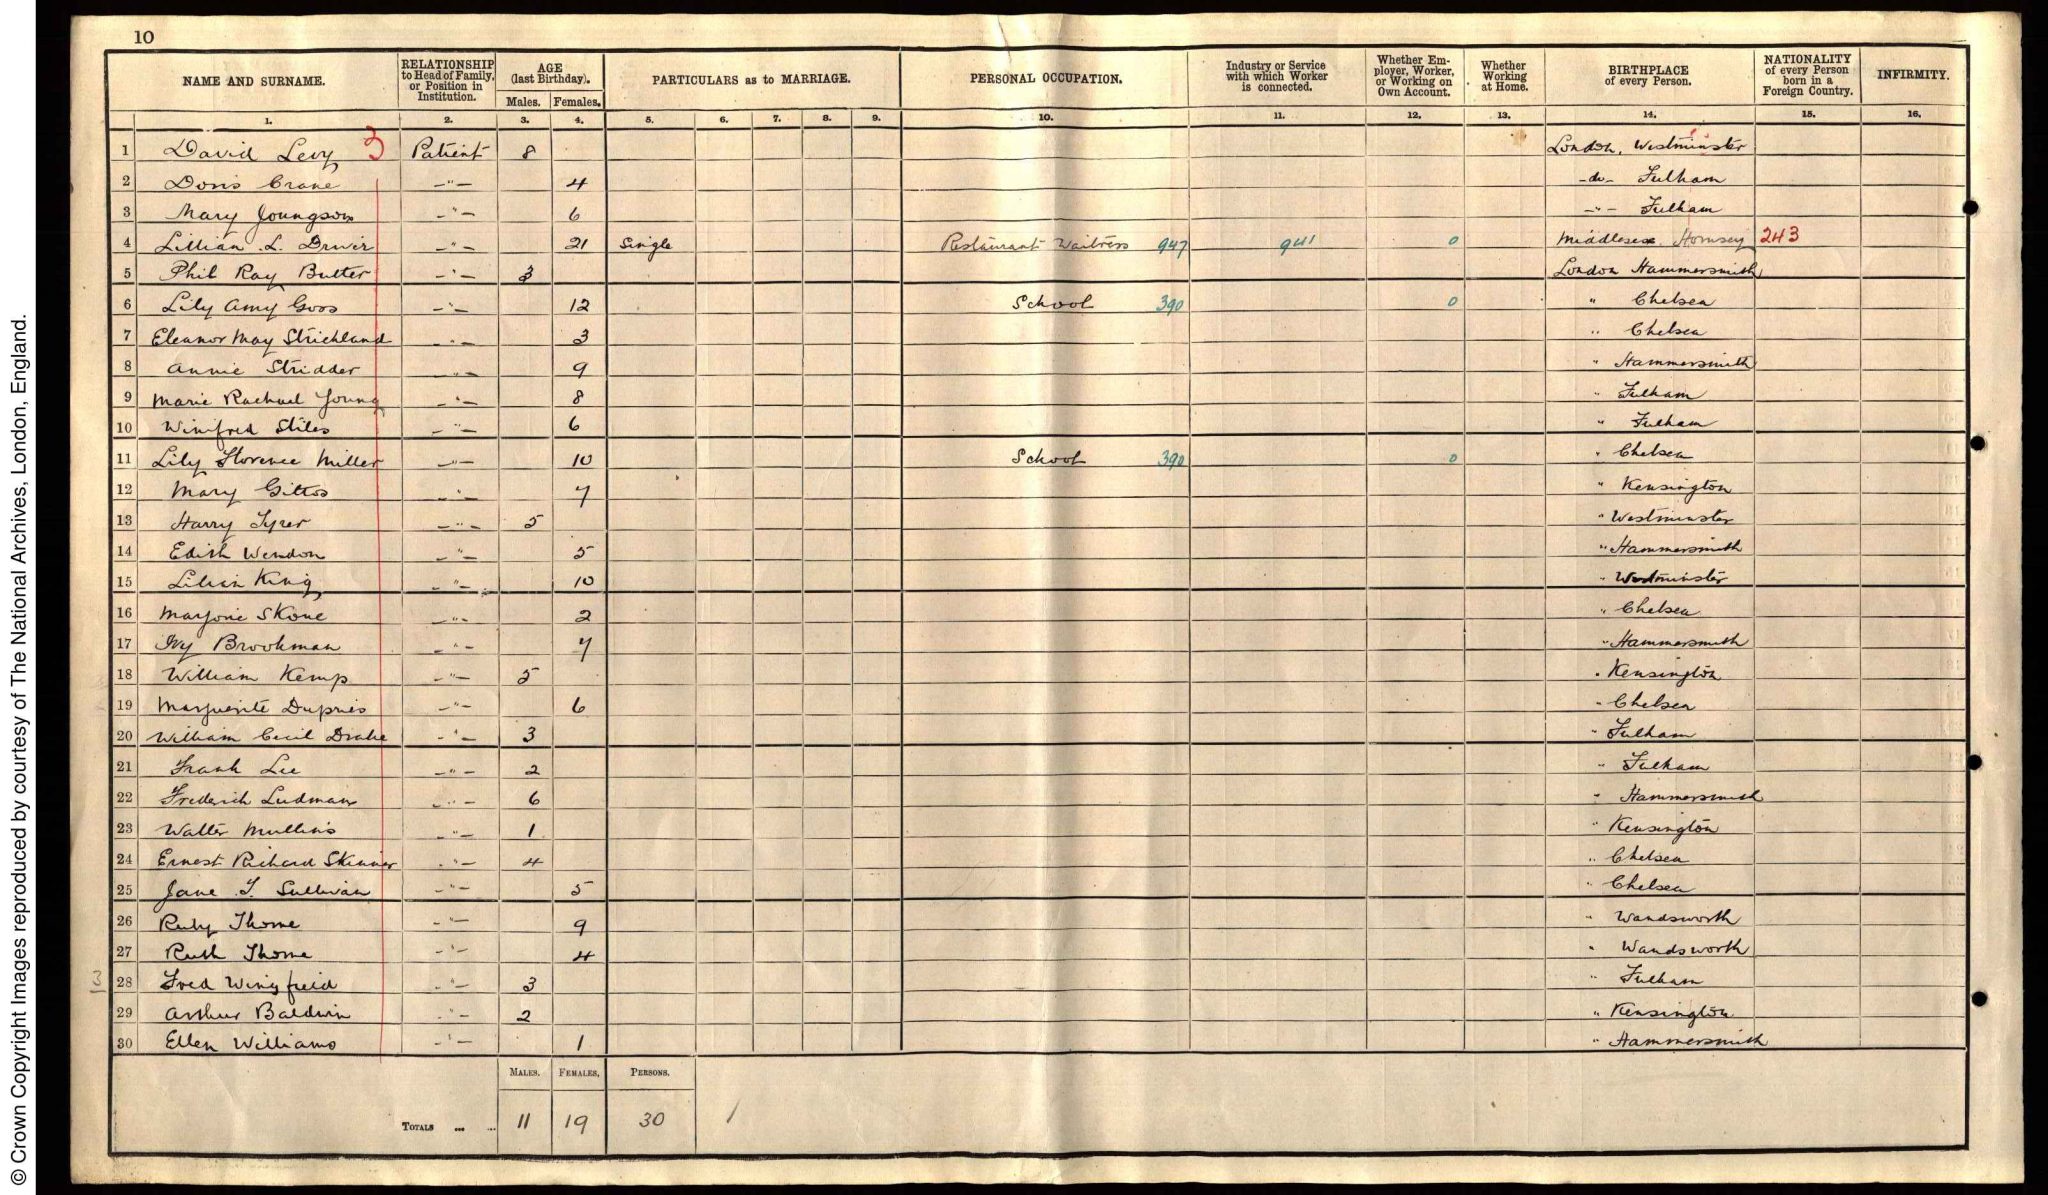 10
NAME AND SURNAME. RELATIONSHIP to Head of Family, or Position in Institution. AGE (last Birthday). Males. Females. PARTICULARS as to MARRIAGE. PERSONAL OCCUPATION. Industry or Service with which Worker is connected. Whether Employer, Worker, or Working on Own Account. Whether Working at Home. BIRTHPLACE of every Person. NATIONALITY of every Person born in a Foreign Country. INFIRMITY.
1. 2. 3. 4. 5. 6. 7. 8. 9. 10. 11. 12. 13. 14. 15. 16.
1 David Levy 3 Patient 8 London, Westminster
2 Doris Crane -"- 4 -do- Fulham
3 Mary Youngson -"- 6 -"- Fulham
4 Lillian L. Driver -"- 21 Single Restaurant Waitress 947 941 0 Middlesex, Hornsey 243
5 Phil Ray Butter -"- 3 London Hammersmith
6 Lily Amy Goss -"- 12 School 390 0 " Chelsea
7 Eleanor May Strickland -"- 3 " Chelsea
8 Annie Stridder -"- 9 " Hammersmith
9 Marie Rachael Young -"- 8 " Fulham
10 Winifred Stiles -"- 6 " Fulham
11 Lily Florence Miller -"- 10 School 390 0 " Chelsea
12 Mary Gittos -"- 7 " Kensington
13 Harry Tyrer -"- 5 " Westminster
14 Edith Wendon -"- 5 " Hammersmith
15 Lilian King -"- 10 " Westminster
16 Marjorie Skone -"- 2 " Chelsea
17 Ivy Brookman -"- 7 " Hammersmith
18 William Kemp -"- 5 " Kensington
19 Marguerite Dupries -"- 6 " Chelsea
20 William Cecil Drake -"- 3 " Fulham
21 Frank Lee -"- 2 " Fulham
22 Frederick Ludman -"- 6 " Hammersmith
23 Walter Mullins -"- 1 " Kensington
24 Ernest Richard Skinner -"- 4 " Chelsea
25 Jane T. Sullivan -"- 5 " Chelsea
26 Ruby Thorne -"- 9 " Wandsworth
27 Ruth Thorne -"- 4 " Wandsworth
3 28 Fred Wingfield -"- 3 " Fulham
29 Arthur Baldwin -"- 2 " Kensington
30 Ellen Williams -"- 1 " Hammersmith
MALES. FEMALES. PERSONS.
TOTALS ... ... 11 19 30 /
© Crown Copyright Images reproduced by courtesy of The National Archives, London, England.